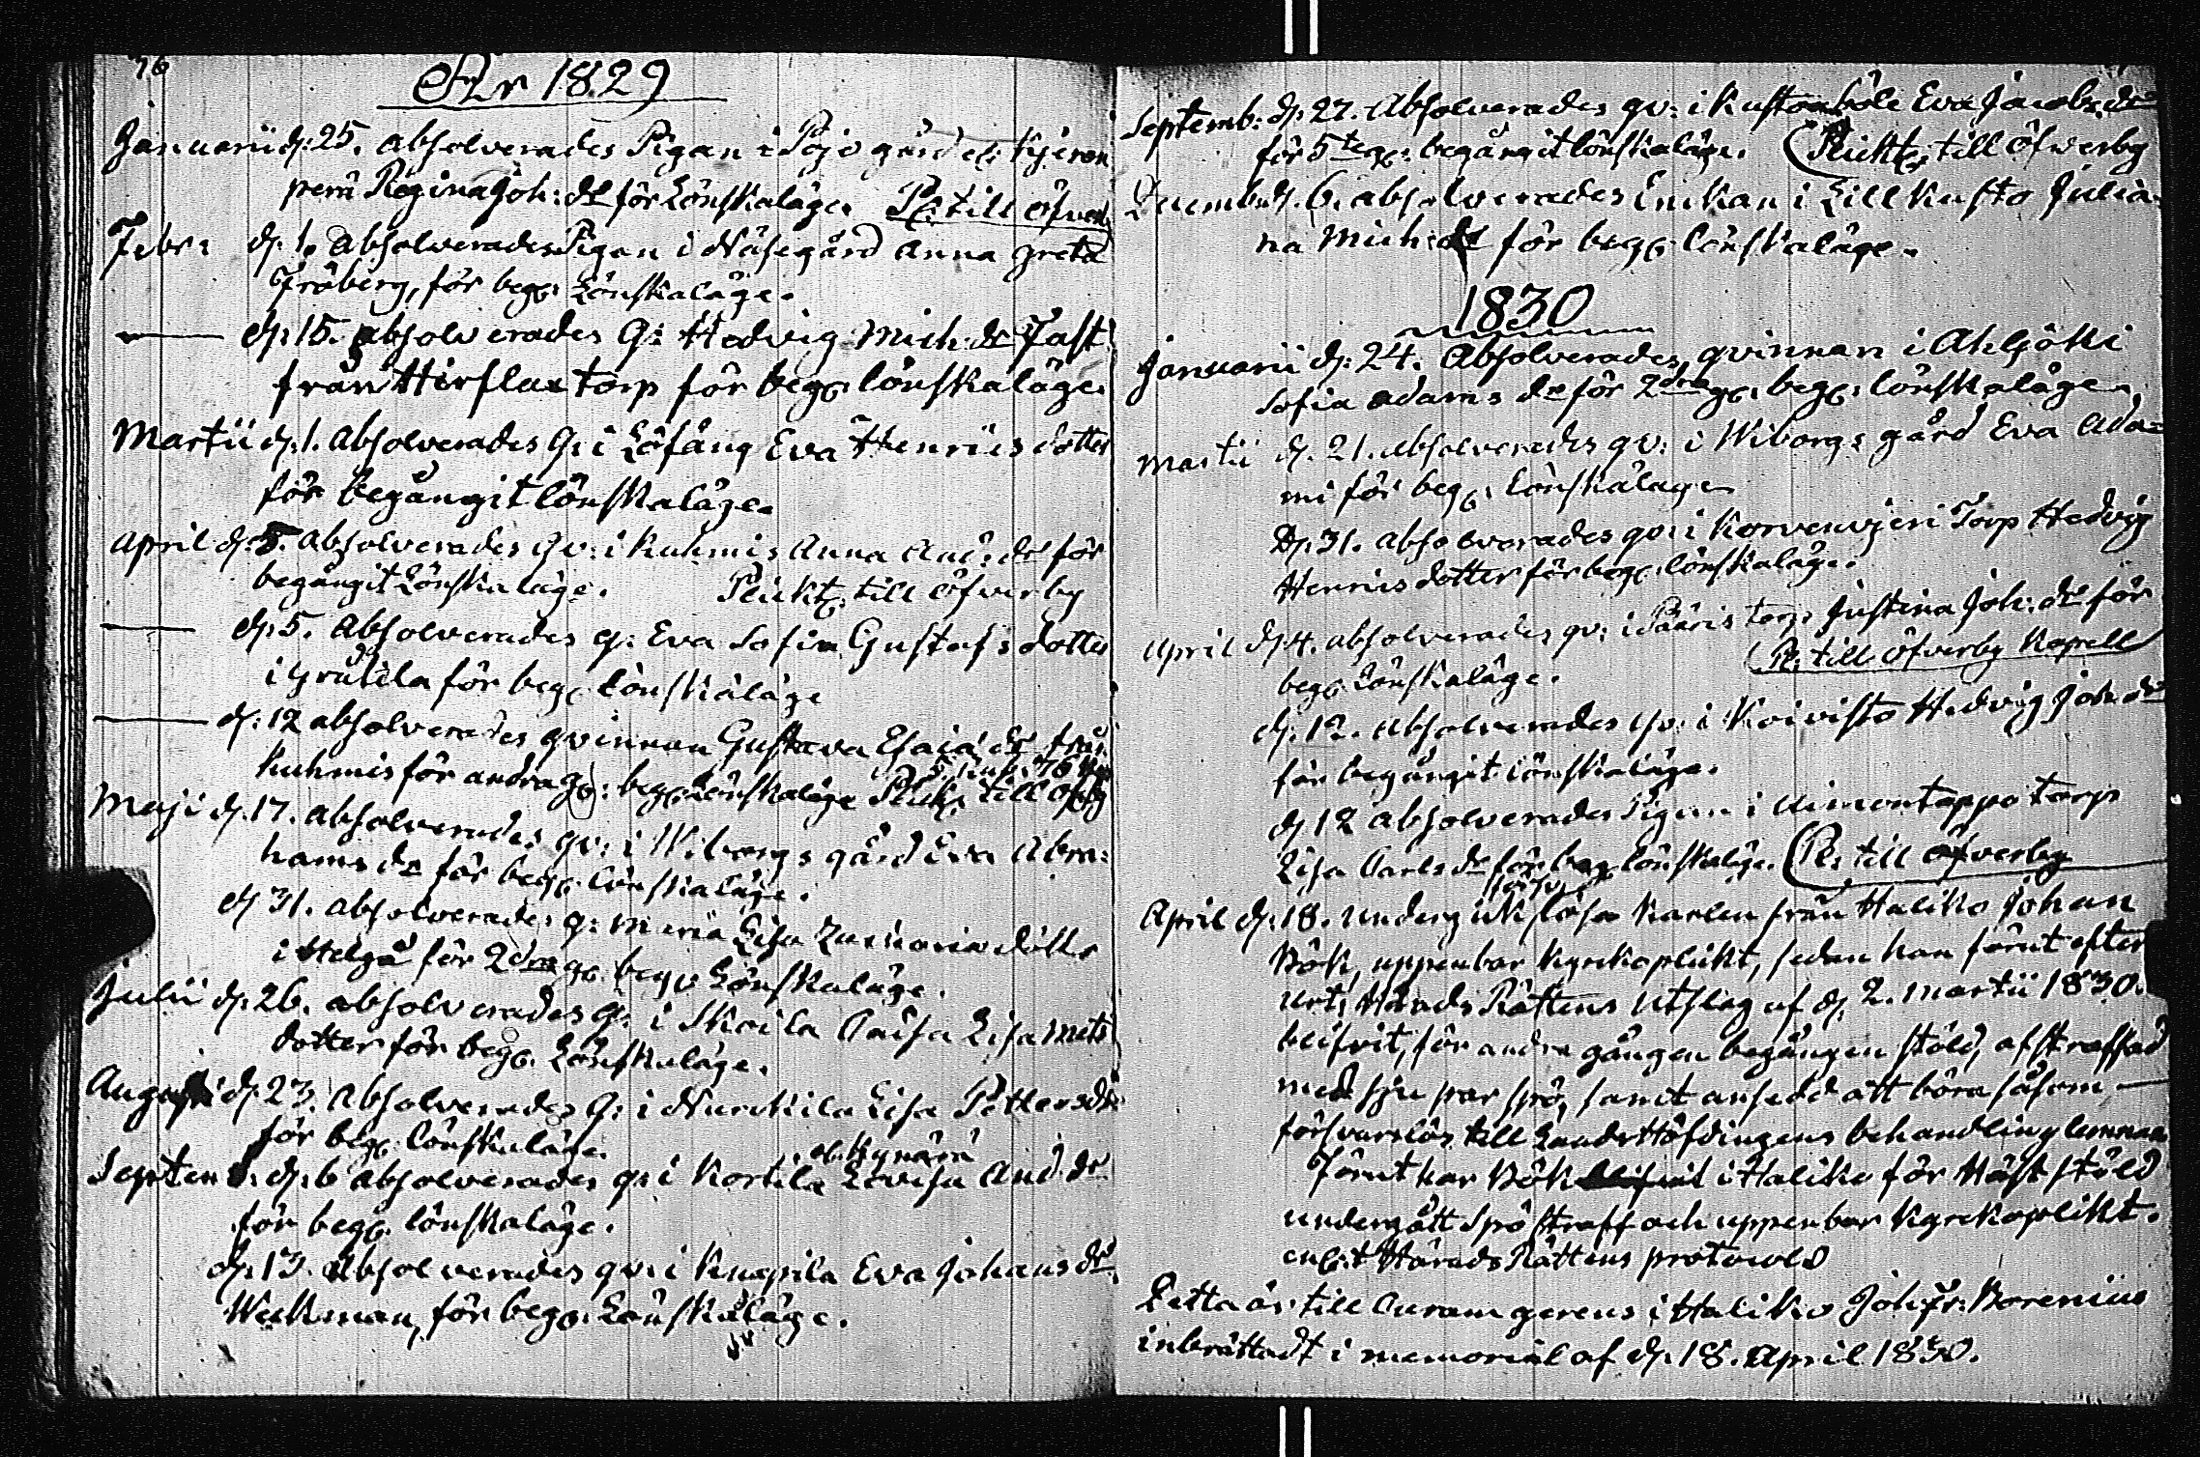 76
År 1829
Januarii d: 25. absolverades Pigan i Pojo gård el: Kjeron
perä Regina Joh: dr för Lönskaläge. Pl: till öfwerby
Febr: d. 1. absolverades Pigan i Näsegård Anna Greta
Fröberg, för beg: Lönskaläge.
— d: 15. absolverades Q: Hedvig Mich: dr Fast
från torp för beg: lönskaläge.
Martii d: 1. absolverades Q: i Löfång Eva Henrics dotter
för begångit lönskaläge.
April d: 5. absolverades qv: i Kuhmis Anna And: dr för
begångit Lönskaläge. Plickt: till öfwerby
— d: 5. absolverades q: Eva Sofia Gustafs dotter
i för beg: Lönskaläge
— d: 12 absolverades qvinnan Gustava Esaiæ dr från
Kuhmis för andra g: beg: Lönskaläge Plickt: till öfby
Maji d. 17. absolverades qv: i Wiborgs gård Eva Abra-
hams dr för beg: Lönskaläge.
d 31. absolverades q: Maria Lisa Zacharia dotter
i Helgå för 2dra g: beg: Lönskaläge.
Julii d. 26. absolverades Q: i Skoila Caisa Lisa Mats
dotter för beg: Lönskaläge.
Augusti d. 23. absolverades Q: i Nurckila Lisa Petters dr
för beg: Lönskaläge.
el. Kynärä
Septemb: d: 6 absolverades q: i Kortila Lovisa And: dr
för beg: lönskaläge.
d: 13. absolverades qv: i Knapila Eva Johans dr
Weckman, för beg: Lönskaläge.
Septemb: d: 27. absolverades qv: i Kustonböle Eva Jacobs dr
för 5te g: begångit lönskaläge. (Plickt: till öfwerby
Decemb: d. 6. absolverades Enkan i Lill Kusto Julia-
na Mich: dr för beg: lönskaläge.
1830
Januarii d: 24. absolverades qvinnan i Ahljöki
Sofia Adams dr för 2dra g: beg: lönskaläge.
Martii d. 21. absolverades qv: i Wiborgs gård Eva Ada-
mi för beg: Lönskaläge
D: 31. absolverades qv: i Korvenojeri Torp Hedvig
Henrics dotter för beg: lönskaläge.
April d 4. absolverades qv: i Pääris torp Justina Joh: dr för
beg: Lönskaläge. (Pl: till öfverby Kapell
d: 12. absolverades qv: i Koivisto Hedvig Joh: dr
för begångit lönskaläge.
d 12 absolverades Pigan i torp
Lisa Carls dr för beg: Lönskaläge. (Pl: till öfwerby
April d: 18. undergick lösa Karlen från Haliko Johan
Böök, uppenbar Kyrkoplickt, sedan han förut efter
Härads Rättens Utslag af d. 2. Martii 1830.
blifvit, för andra gången begången stöld, afstraffad
med sju par spö, samt ansedd att böra såsom —
försvarslös till Landshöfdingens behandling lemnas.
Förut har Böök i Haliko för Häst stöld
undergått Spö straff och uppenbar Kyrkoplikt.
enl:t Härads Rättens protocoll
Detta är till Curam gerens i Haliko Joh: Fr: Borenius
inberättadt i memorial af d. 18. April 1830.